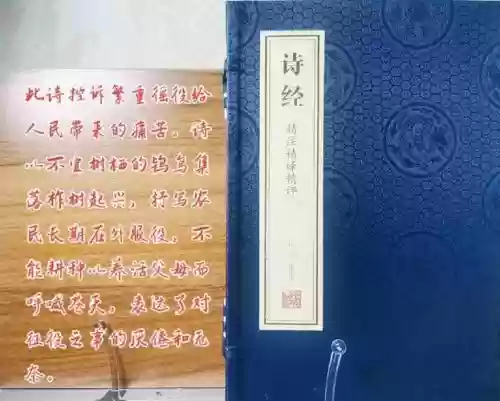 此诗控诉繁重徭役给
人民带来的痛苦。诗
以不宜树栖的鸨鸟集
落柞树起兴，抒写农
民长期在外服役，不
能耕种以养活父母而
呼喊苍天，表达了对
征役之事的厌倦和无
奈。
诗经
精注精译精评